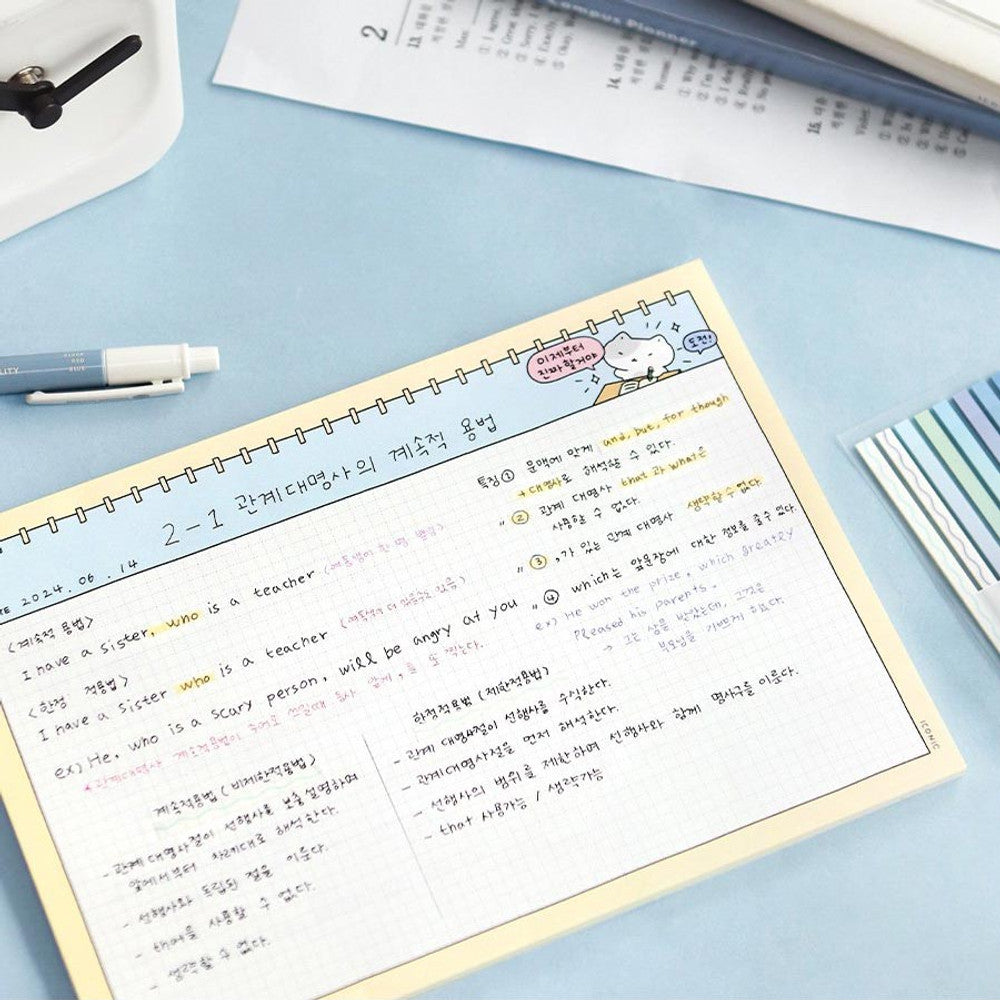 2
13. 대화를
적절한 것은
Man:
① I agree
② Great
③ Sorry, I
④ Exactly
⑤ Okay.
14. 대화를
적절한
Woman:
① Why
② I'm
③ I do
④ Really
⑤ No
15. 다음
적절한
① W
② Is
③ W
Campus Planner
LITY
이제부터
진짜 할거야
도전!
2-1 관계대명사의 계속적 용법
2024. 06. 14
<계속적 용법>
I have a sister, who is a teacher
<한정 적용법>
I have a sister who is a teacher
ex) He, who is a scary person, will be angry at you
* 관계대명사 계속적용법이 주어로 쓰일때 동사 앞에 , 를 또 찍는다.
계속적용법 (비제한적용법)
- 관계대명사절이 선행사를 보충설명하며
앞에서부터 차례대로 해석한다.
- 선행사와 독립된 절을 이룬다.
- that을 사용할 수 없다.
- 생략할 수 없다.
특징① 문맥에 맞게 and, but, for though
+ 대명사로 해석할 수 있다.
" ② 관계 대명사 that 과 what은
사용할 수 없다.
" ③ , 가 있는 관계 대명사 생략할 수 없다.
" ④ which는 앞문장에 대한 정보를 줄 수 있다.
ex) He won the prize, which greatly
pleased his parents.
→ 그는 상을 받았는데, 그것은
부모님을 기쁘게 했다.
한정적용법 (제한적용법)
- 관계 대명사절이 선행사를 수식한다.
- 관계대명사절을 먼저 해석한다.
- 선행사의 범위를 제한하며 선행사와 함께 명사구를 이룬다.
- that 사용가능 / 생략가능
ICONIC